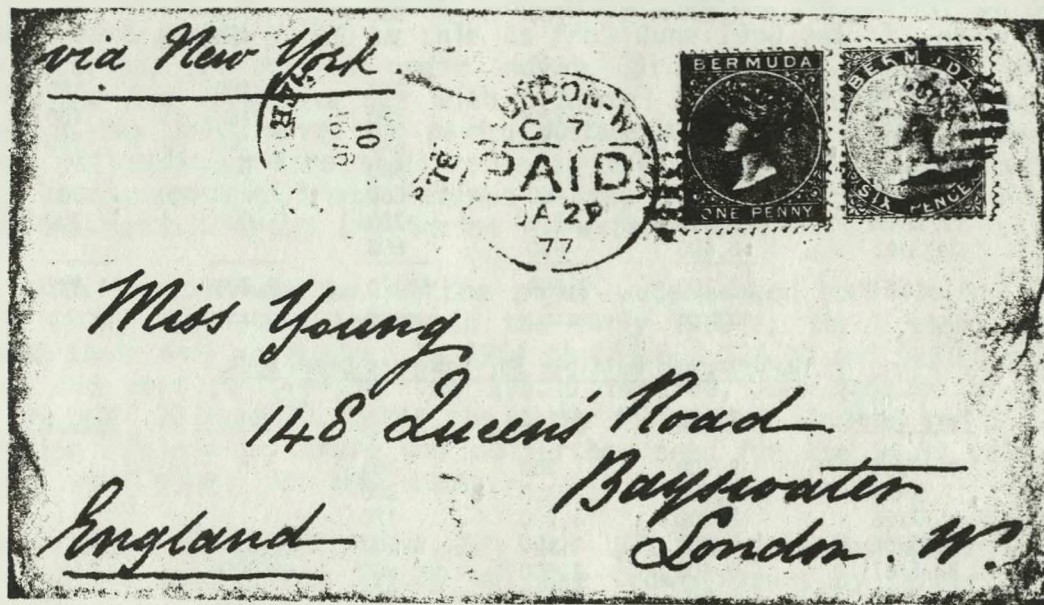 via New York.
LONDON-W
C 7
PAID
JA 29
77
BERMUDA
ONE PENNY
BERMUDA
SIX PENCE
Miss Young
148 Queen's Road
Bayswater
London. W.
England